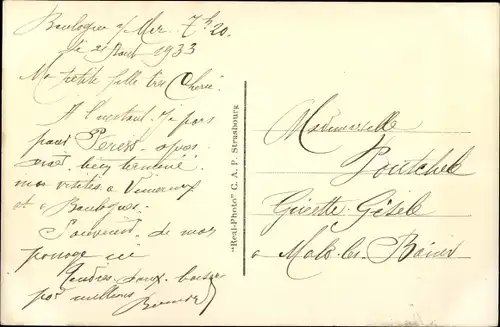 Boulogne s/ Mer 7h 20.
le 21 Août 1933
Ma petite fille très Chérie
A l'instant je pars
pour après
avoir bien terminé
mes visites à Wimereux
et à Boulogne.
Souvenir de mon
passage
Tendres doux baisers
par millions
"Real-Photo" C. A. P. Strasbourg
Mademoiselle
Ginette Gisèle
à Malo les Bains